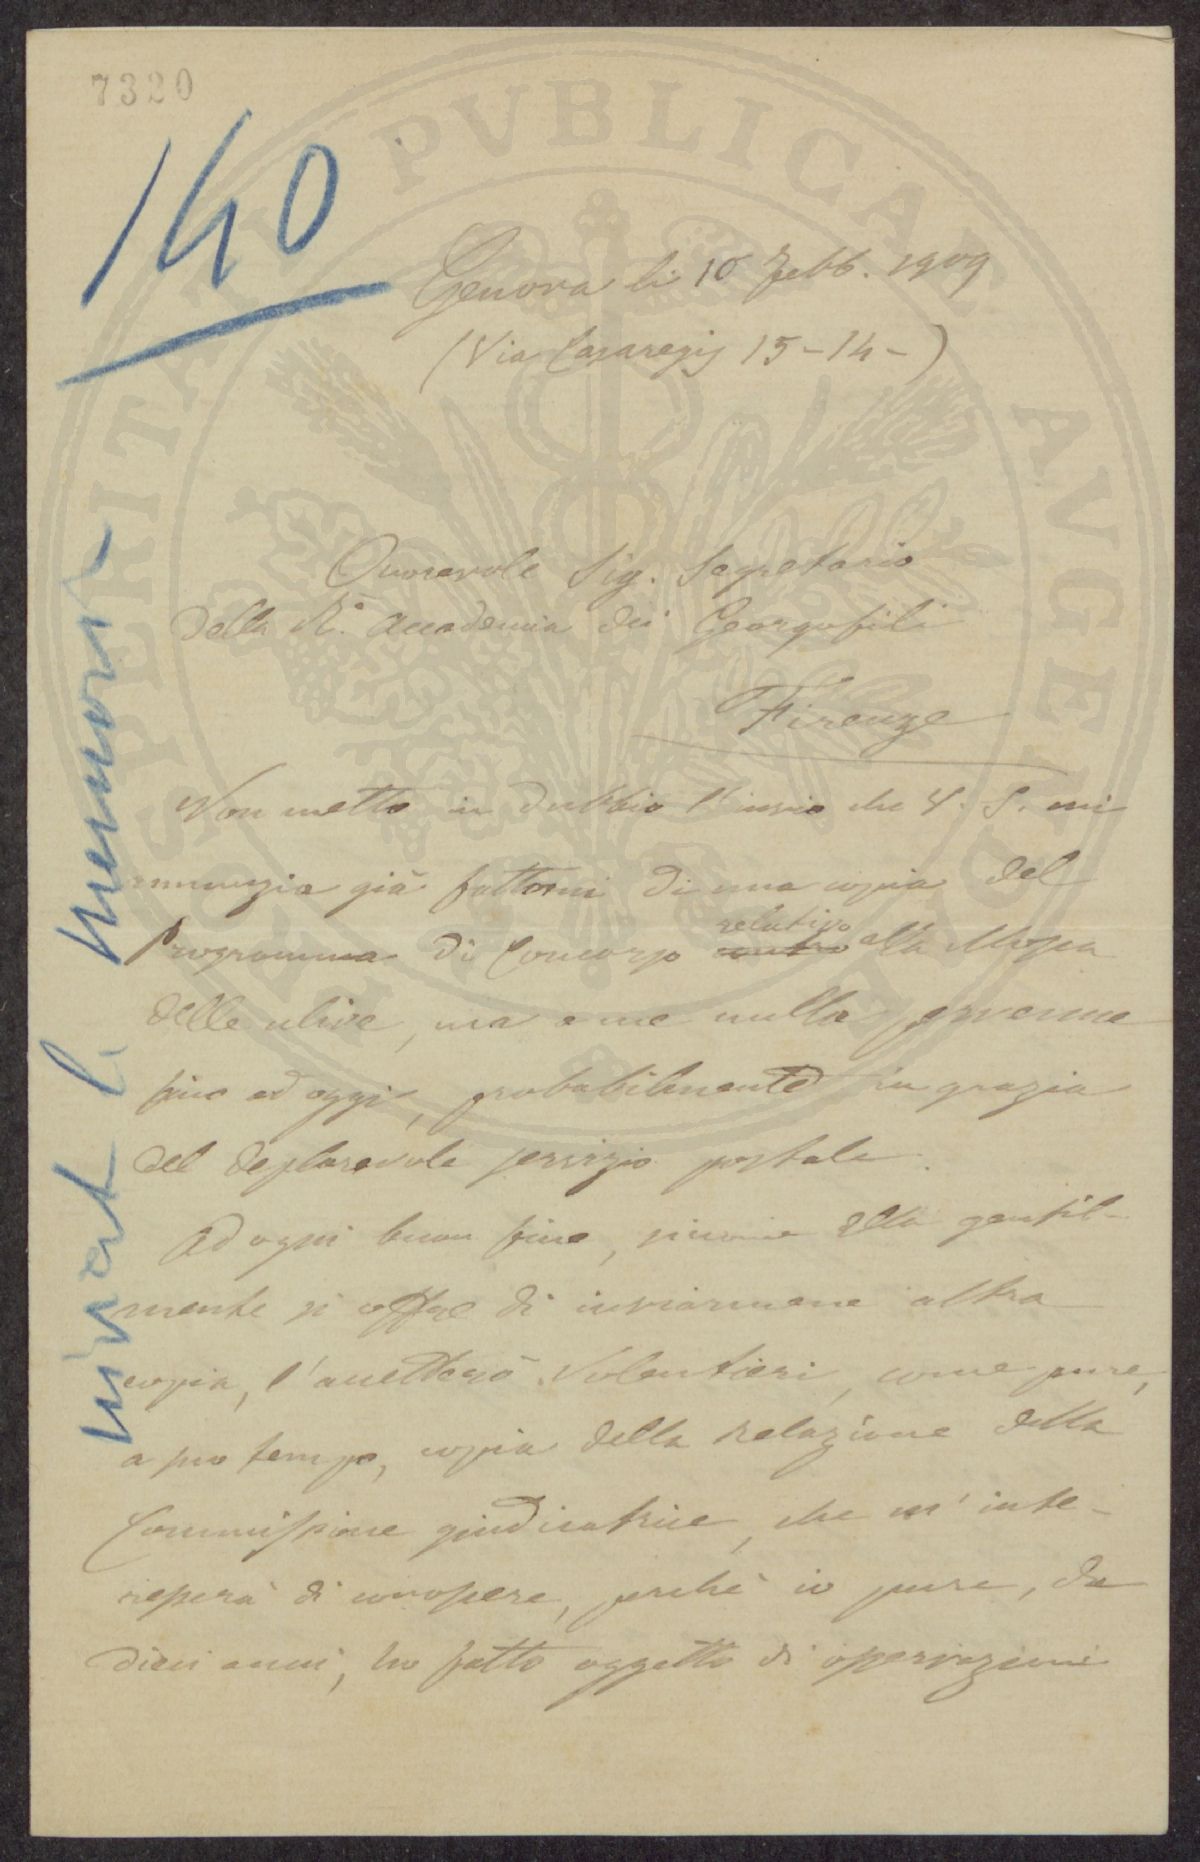 7320
140
Genova li 10 Febb. 1909
(Via Casaregis 15-14-)
Onorevole Sig. Segretario
della R. Accademia dei Georgofili
Firenze
Non metto in dubbio l'invio che V. S. mi
annunzia già fattomi di una copia del
Programma di Concorso contro relativo alla Mosca
delle ulive, ma a me nulla pervenne
fino ad oggi, probabilmente in grazia
del deplorevole servizio postale.
Ad ogni buon fine, siccome Ella gentil-
mente si offre di inviarmene altra
copia, l'accetterò volentieri, come pure,
a suo tempo, copia della relazione della
Commissione giudicatrice, che m'inte-
resserà di conoscere, perchè io pure, da
dieci anni, ho fatto oggetto di osservazioni
inviat li
PROSPERITATI PVBLICAE AVGENDAE